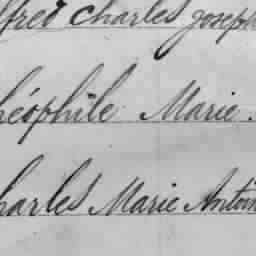 lfred Charles Joseph
héophile Marie.
harles Marie Antoin